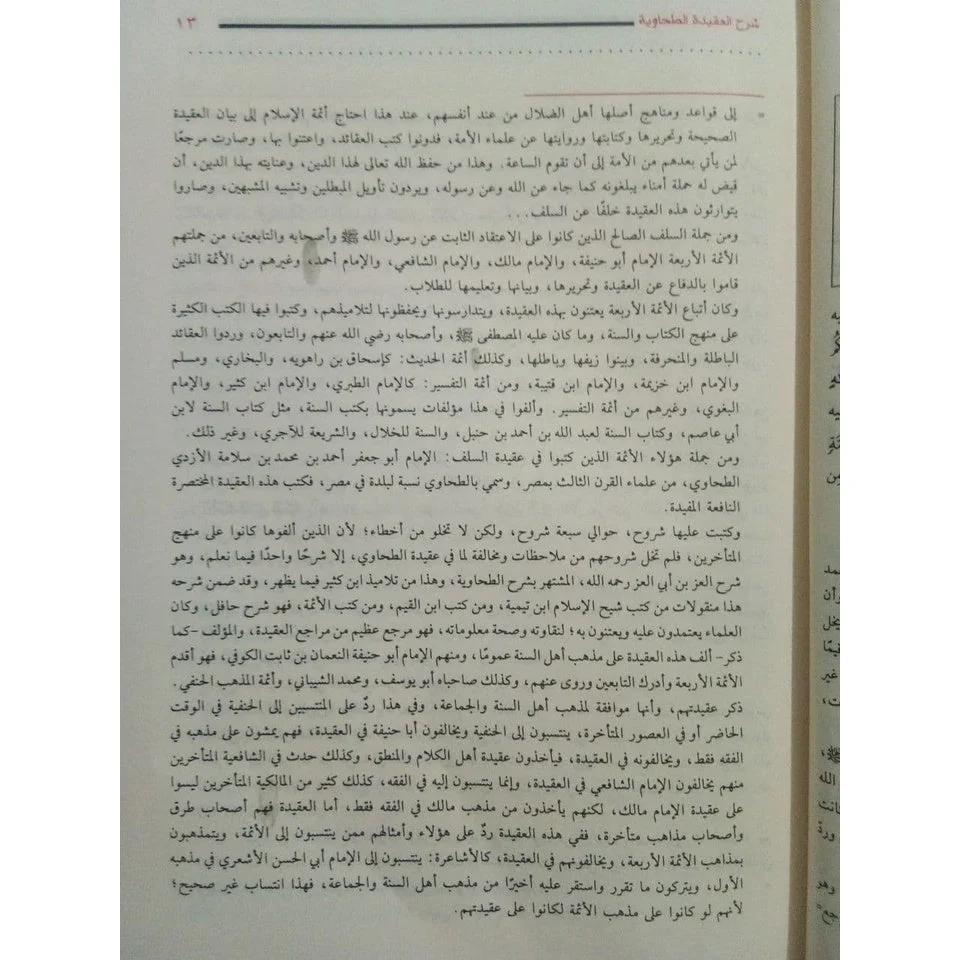 شرح العقيدة الطحاوية ١٣
= إلى قواعد ومناهج أصلها أهل الضلال من عند أنفسهم، عند هذا احتاج أئمة الإسلام إلى بيان العقيدة
الصحيحة وتحريرها وكتابتها وروايتها عن علماء الأمة، فدونوا كتب العقائد، واعتنوا بها، وصارت مرجعًا
لمن يأتي بعدهم من الأمة إلى أن تقوم الساعة. وهذا من حفظ الله تعالى لهذا الدين، وعنايته بهذا الدين، أن
قيض له حملة أمناء يبلغونه كما جاء عن الله وعن رسوله، ويردون تأويل المبطلين وتشبيه المشبهين، وصاروا
يتوارثون هذه العقيدة خلفًا عن السلف...
ومن جملة السلف الصالح الذين كانوا على الاعتقاد الثابت عن رسول الله ﷺ وأصحابه والتابعين، من جملتهم
الأئمة الأربعة الإمام أبو حنيفة، والإمام مالك، والإمام الشافعي، والإمام أحمد، وغيرهم من الأئمة الذين
قاموا بالدفاع عن العقيدة وتحريرها، وبيانها وتعليمها للطلاب.
وكان أتباع الأئمة الأربعة يعتنون بهذه العقيدة، ويتدارسونها ويحفظونها لتلاميذهم، وكتبوا فيها الكتب الكثيرة
على منهج الكتاب والسنة، وما كان عليه المصطفى ﷺ، وأصحابه رضي الله عنهم والتابعون، وردوا العقائد
الباطلة والمنحرفة، وبينوا زيفها وباطلها، وكذلك أئمة الحديث: كإسحاق بن راهويه، والبخاري، ومسلم
والإمام ابن خزيمة، والإمام ابن قتيبة، ومن أئمة التفسير: كالإمام الطبري، والإمام ابن كثير، والإمام
البغوي، وغيرهم من أئمة التفسير. وألفوا في هذا مؤلفات يسمونها بكتب السنة، مثل كتاب السنة لابن
أبي عاصم، وكتاب السنة لعبد الله بن أحمد بن حنبل، والسنة للخلال، والشريعة للآجري، وغير ذلك.
ومن جملة هؤلاء الأئمة الذين كتبوا في عقيدة السلف: الإمام أبو جعفر أحمد بن محمد بن سلامة الأزدي
الطحاوي، من علماء القرن الثالث بمصر، وسمي بالطحاوي نسبة لبلدة في مصر، فكتب هذه العقيدة المختصرة
النافعة المفيدة.
وكتبت عليها شروح، حوالي سبعة شروح، ولكن لا تخلو من أخطاء؛ لأن الذين ألفوها كانوا على منهج
المتأخرين، فلم تخل شروحهم من ملاحظات ومخالفة لما في عقيدة الطحاوي، إلا شرحًا واحدًا فيما نعلم، وهو
شرح العز بن أبي العز رحمه الله، المشتهر بشرح الطحاوية، وهذا من تلاميذ ابن كثير فيما يظهر، وقد ضمن شرحه
هذا منقولات من كتب شيخ الإسلام ابن تيمية، ومن كتب ابن القيم، ومن كتب الأئمة، فهو شرح حافل، وكان
العلماء يعتمدون عليه ويعتنون به؛ لنقاوته وصحة معلوماته، فهو مرجع عظيم من مراجع العقيدة، والمؤلف -كما
ذكر- ألف هذه العقيدة على مذهب أهل السنة عمومًا، ومنهم الإمام أبو حنيفة النعمان بن ثابت الكوفي، فهو أقدم
الأئمة الأربعة وأدرك التابعين وروى عنهم، وكذلك صاحباه أبو يوسف، ومحمد الشيباني، وأئمة المذهب الحنفي.
ذكر عقيدتهم، وأنها موافقة لمذهب أهل السنة والجماعة، وفي هذا ردٌّ على المنتسبين إلى الحنفية في الوقت
الحاضر أو في العصور المتأخرة، ينتسبون إلى الحنفية ويخالفون أبا حنيفة في العقيدة، فهم يمشون على مذهبه في
الفقه فقط، ويخالفونه في العقيدة، فيأخذون عقيدة أهل الكلام والمنطق، وكذلك حدث في الشافعية المتأخرين
منهم يخالفون الإمام الشافعي في العقيدة، وإنما ينتسبون إليه في الفقه، كذلك كثير من المالكية المتأخرين ليسوا
على عقيدة الإمام مالك، لكنهم يأخذون من مذهب مالك في الفقه فقط، أما العقيدة فهم أصحاب طرق
وأصحاب مذاهب متأخرة، ففي هذه العقيدة ردٌّ على هؤلاء وأمثالهم ممن ينتسبون إلى الأئمة، ويتمذهبون
بمذاهب الأئمة الأربعة، ويخالفونهم في العقيدة، كالأشاعرة: ينتسبون إلى الإمام أبي الحسن الأشعري في مذهبه
الأول، ويتركون ما تقرر واستقر عليه أخيرًا من مذهب أهل السنة والجماعة، فهذا انتساب غير صحيح؛
لأنهم لو كانوا على مذهب الأئمة لكانوا على عقيدتهم.